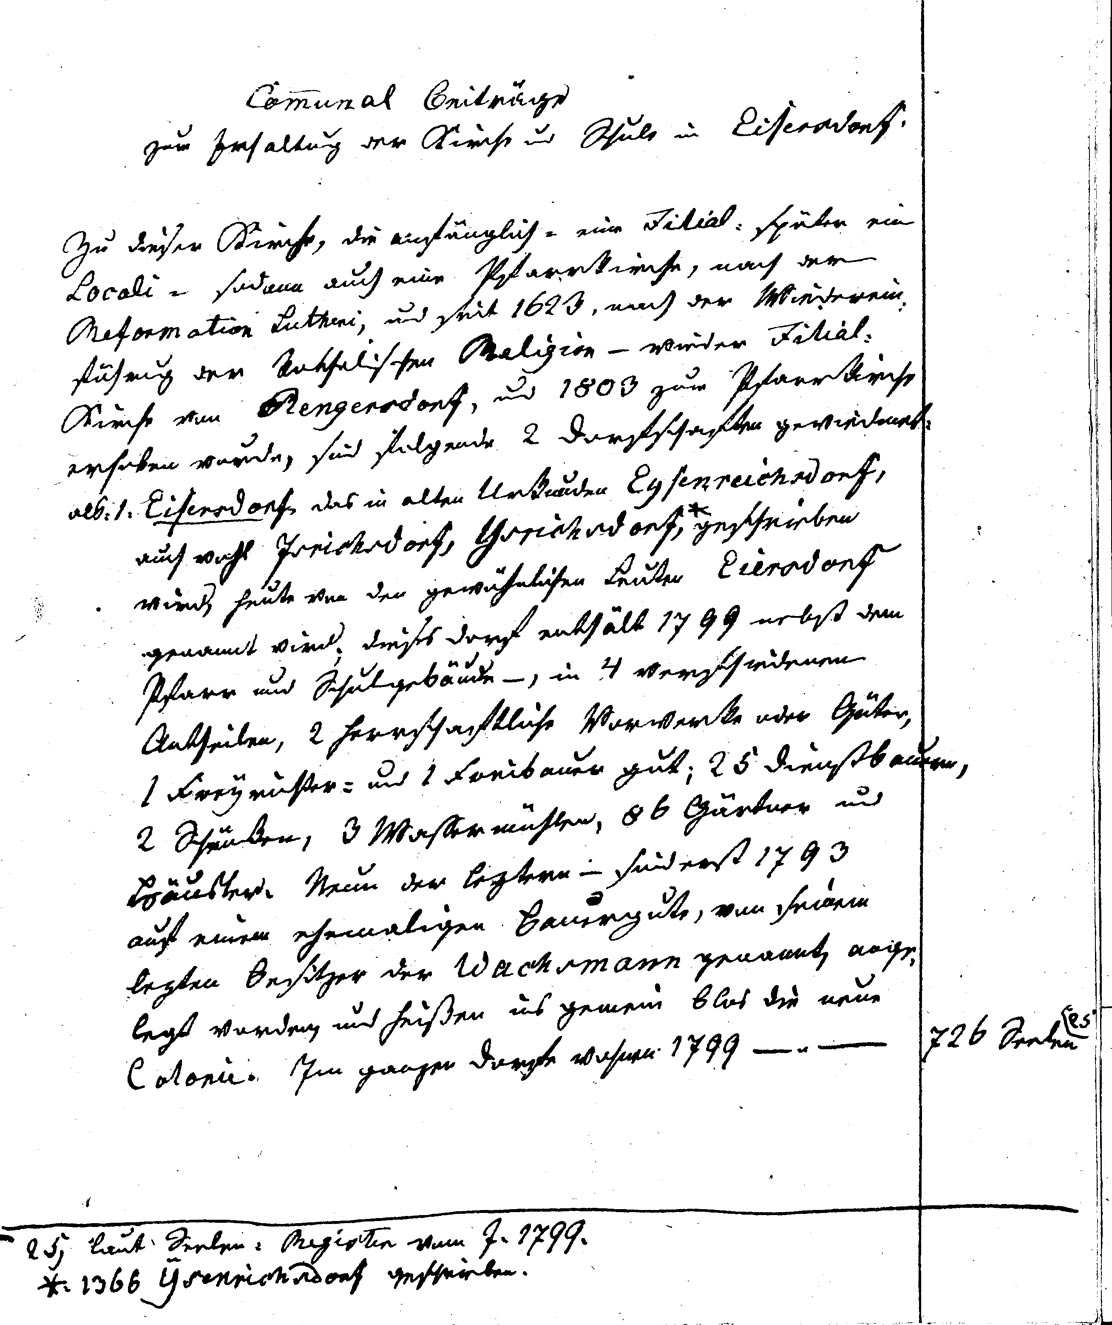 Com̅unal Beiträge
zur Erhaltung der Kirche und Schule in Eisersdorf.
Zu dieser Kirche, die anfänglich - eine Filial: später ein
Locali - sodann auch eine Pfarrkirche, nach der
Reformation Lutheri, und seit 1623, nach der Wiederein-
führung der katholischen Religion – wieder Filial:
Kirche von Rengersdorf, und 1803 zum Pfarrkirche
erhoben wurde, sind folgende 2 Dorfschaften gewiedmet:
als: 1. Eisersdorf, das in alten Urkunden Eysenreichsdorf,
auch wohl Isrichsdorf, Ysrichsdorf,* geschrieben
wird, heute von den gewöhnlichen Leuten Eiersdorf
genannt wird; dieses Dorf enthält 1799 nebst dem
Pfarr und Schulgebäude –, in 4 verschiedenen
Antheilen, 2 herrschaftliche Vorwerke oder Güter,
1 Freyrichter= und 1 Freibauer gut; 25 Dienstbauern,
2 Schänken, 3 Wassermühlen, 86 Gärtner und
Häusler. Neun der leztern – sind erst 1793
auf einem ehemaligen Bauergute, von seinem
lezten Besitzer der Wachsmann genannt, ange-
legt worden, und heißen ins gemein blos die neue
Colonie. Im ganzen Dorfe wohnen 1799 — " — 726 Seelen (25
25) laut Seelen: Register vom J. 1799.
*. 1366 Ysenrichsdorf geschrieben.